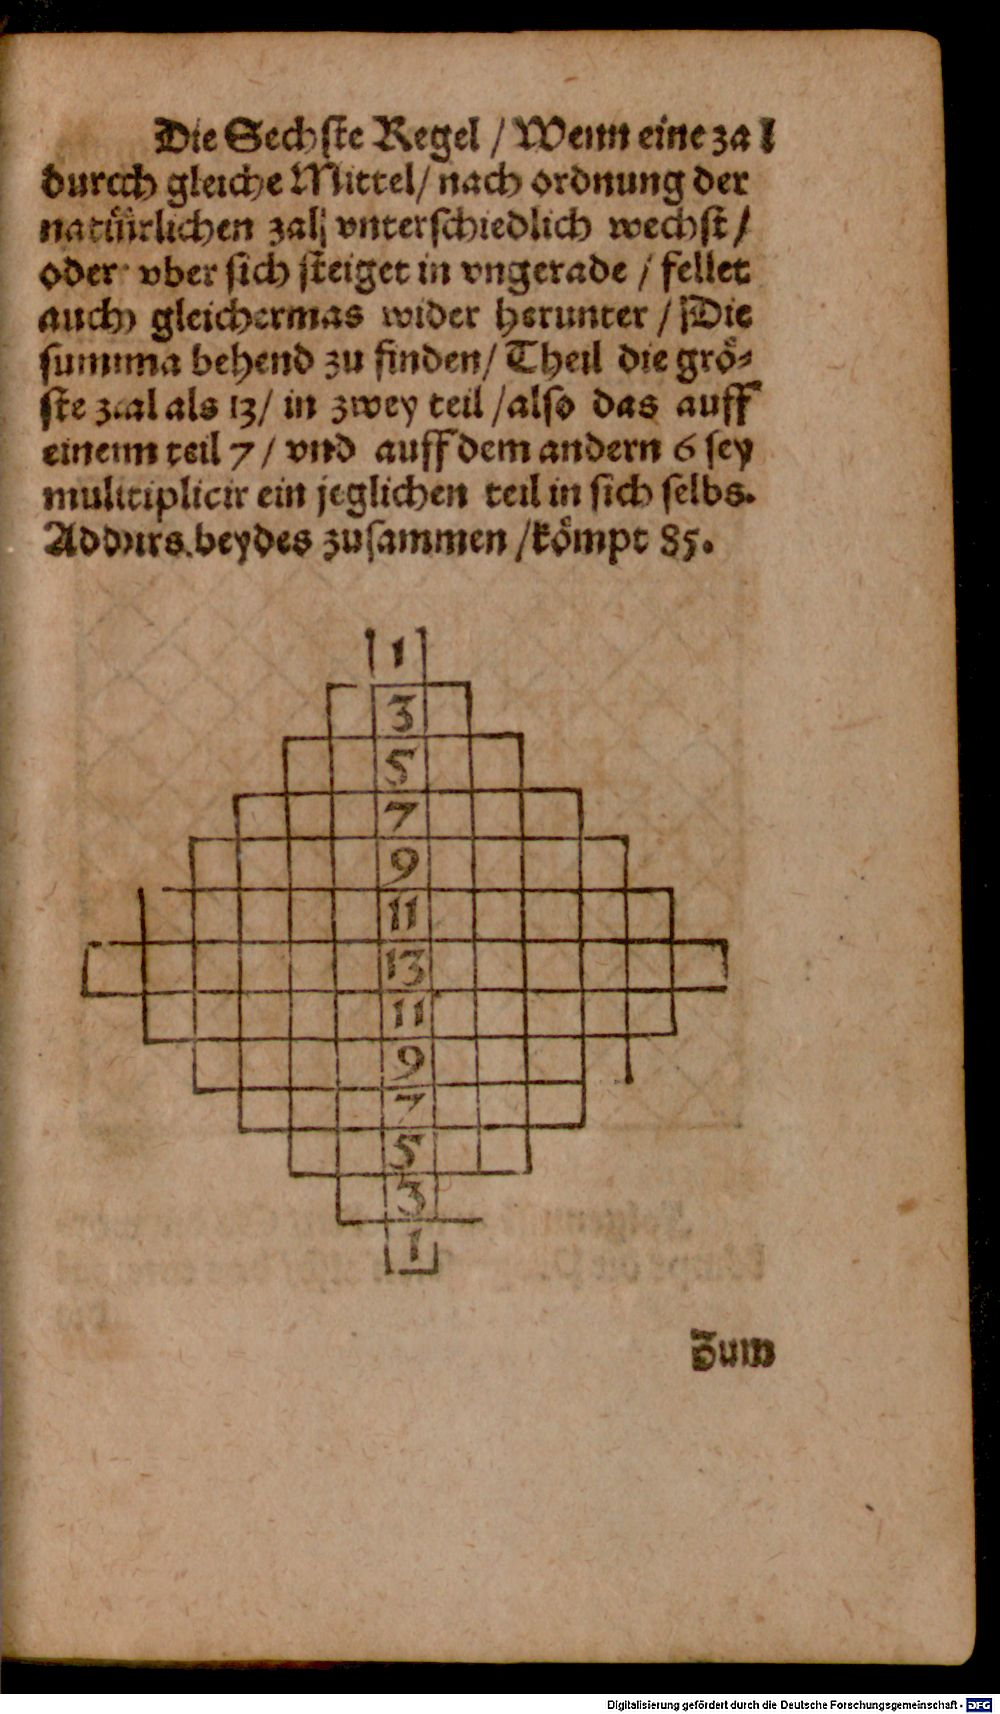 Die Sechste Regel / Wenn eine zal
durcch gleiche Mittel / nach ordnung der
natüürlichen zalj vnterschiedlich wechst /
oder vber sich steiget in vngerade / fellet
auch gleichermas wider herunter / Die
summa behend zu finden / Theil die grö-
ste zaal als 13 / in zwey teil / also das auff
einenn teil 7 / vnd auff dem andern 6 sey
mulitiplicir ein jeglichen teil in sich selbs.
beydes zusammen / kömpt 85.
1
3
5
7
9
11
13
11
9
7
5
3
1
Zum
Digitalisierung gefördert durch die Deutsche Forschungsgemeinschaft - DFG